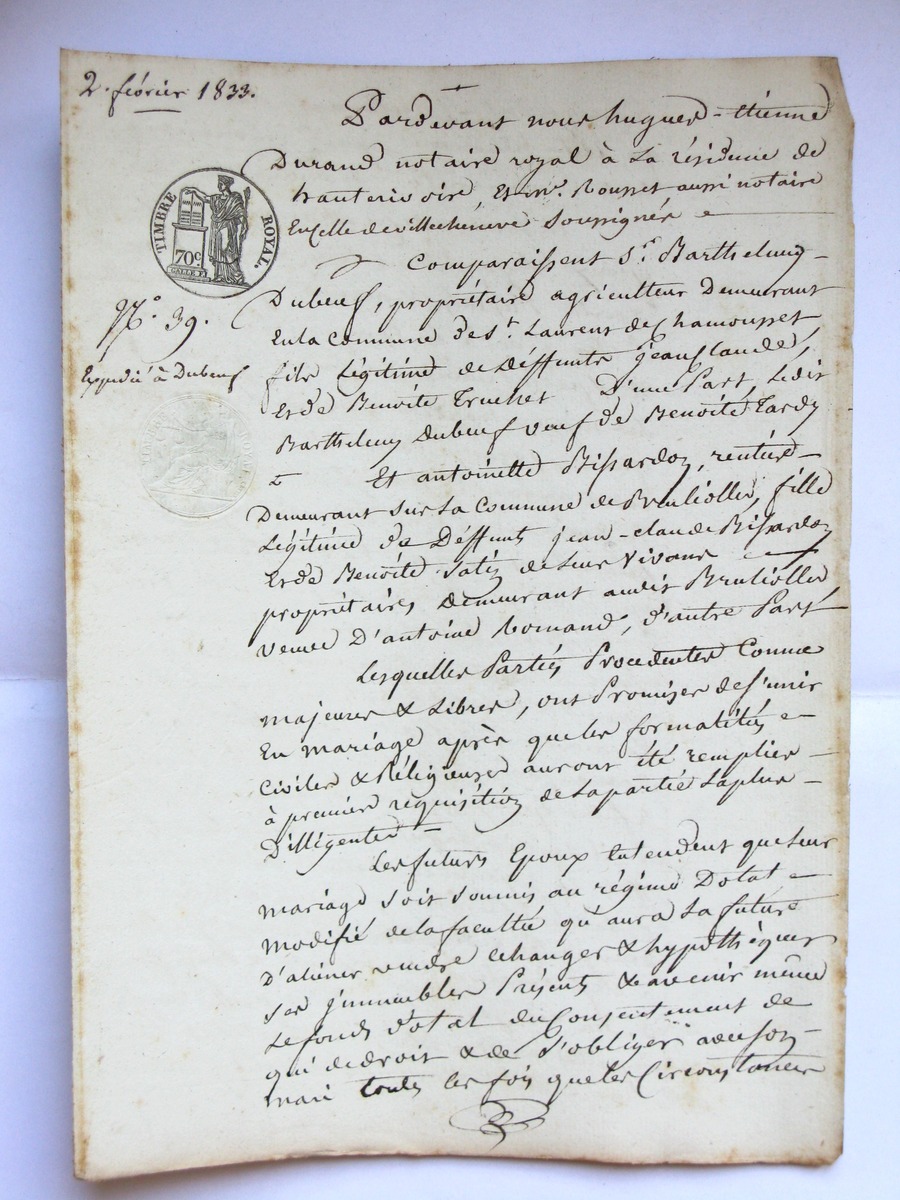 2. février 1833.
Pardevant nous hugues-étienne
Durand notaire royal à la résidence de
hauterivoire, Et Mr. Rousset aussi notaire
En celle de villecheneve soussignés
TIMBRE ROYAL.
70c.
Comparaissent Sr. Barthelemy
Dubeuf, propriétaire agriculteur Demeurant
N°. 39.
En la commune de St. Laurent de Chamousset,
Expedié à Dubeuf
fils Légitime de Déffunts jean claude,
Et de Benoite Truchet D'une Part, Ledit
Barthelemy Dubeuf veuf de Benoite Tardy
Et antoinette Bissardon, rentière
Demeurant sur La Commune de Brulioller, fille
Légitime de Déffunts jean-claude Bissardon
Et de Benoite de Leur Vivant
propriétaires Demeurant audit Brulioller
veuve D'antoine, D'autre Part
Lesquelles Parties Procedentes Comme
majeures & Libres, ont Promises de s'unir
En mariage après que les formalités
Civiles & Réligieuses auront été remplies
à premier réquisition de la partie La plus
Dilligente
Les futurs Epoux Entendent que Leur
mariage soit soumis au régime Dotal
modifié de la facultée qu'aura La future
D'aliéner vendre échanger & hypothéquer
ses jmmeubles Présents & avenir même
Le fonds Dotal du Consentement de
qui de droit & de s'obliger avec son
mari toutes les fois que les Circonstances